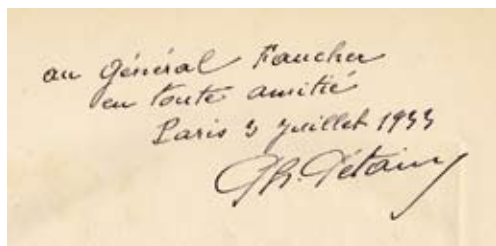 au Général Faucher
en toute amitié
Paris 3 juillet 1933
Ph. Pétain